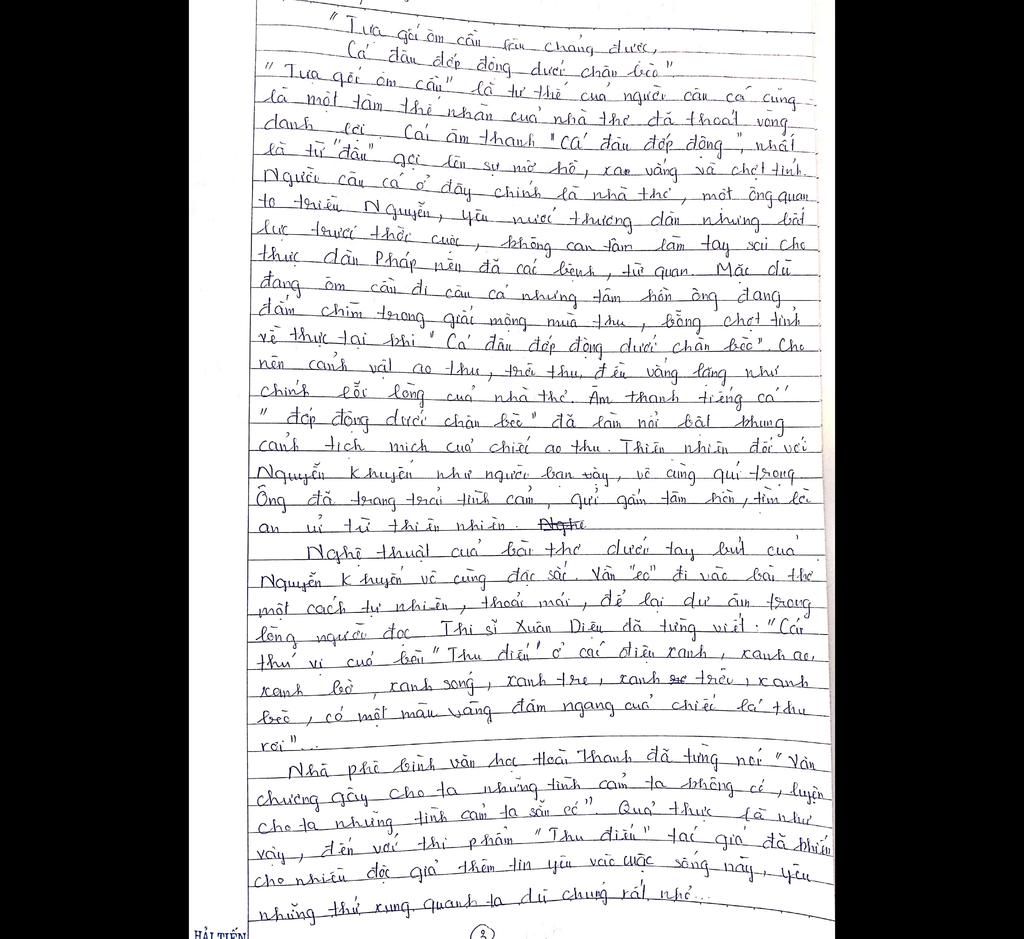 "Tựa gối ôm cần lâu chẳng được,
Cá đâu đớp động dưới chân bèo".
"Tựa gối ôm cần" là tư thế của người câu cá cũng
là một tâm thế nhàn của nhà thơ đã thoát vòng
danh lợi. Cái âm thanh "Cá đâu đớp động", nhất
là từ "đâu" gợi lên sự mơ hồ, xa vắng và chợt tỉnh.
Người câu cá ở đây chính là nhà thơ, một ông quan
to triều Nguyễn, yêu nước thương dân nhưng bất
lực trước thời cuộc, không cam tâm làm tay sai cho
thực dân Pháp nên đã cáo bệnh, từ quan. Mặc dù
đang ôm cần đi câu cá nhưng tâm hồn ông đang
đắm chìm trong giấc mộng mùa thu, bỗng chợt tỉnh
về thực tại khi "Cá đâu đớp động dưới chân bèo". Cho
nên cảnh vật ao thu, trời thu đều vắng lặng như
chính cõi lòng của nhà thơ. Âm thanh tiếng cá
"đớp động dưới chân bèo" đã làm nổi bật khung
cảnh tịch mịch của chiếc ao thu. Thiên nhiên đối với
Nguyễn Khuyến như người bạn vậy, vô cùng quí trọng.
Ông đã trang trải tình cảm, gửi gắm tâm hồn, tìm lời
an ủi từ thiên nhiên. Nghệ
Nghệ thuật của bài thơ dưới tay bút của
Nguyễn Khuyến vô cùng đặc sắc. Vần "eo" đi vào bài thơ
một cách tự nhiên, thoải mái, để lại dư âm trong
lòng người đọc. Thi sĩ Xuân Diệu đã từng viết: "Cái
thú vị của bài "Thu điếu" ở các điệu xanh, xanh ao,
xanh bờ, xanh sóng, xanh tre, xanh trời, xanh
bèo, có một màu vàng đâm ngang của chiếc lá thu
rơi"...
Nhà phê bình văn học Hoài Thanh đã từng nói "Văn
chương gây cho ta những tình cảm ta không có, luyện
cho ta những tình cảm ta sẵn có". Quả thực là như
vậy, đến với thi phẩm "Thu điếu" tác giả đã khiến
cho nhiều độc giả thêm tin yêu vào cuộc sống này, yêu
những thứ xung quanh ta dù chúng rất nhỏ...
HẢI TIẾN
3